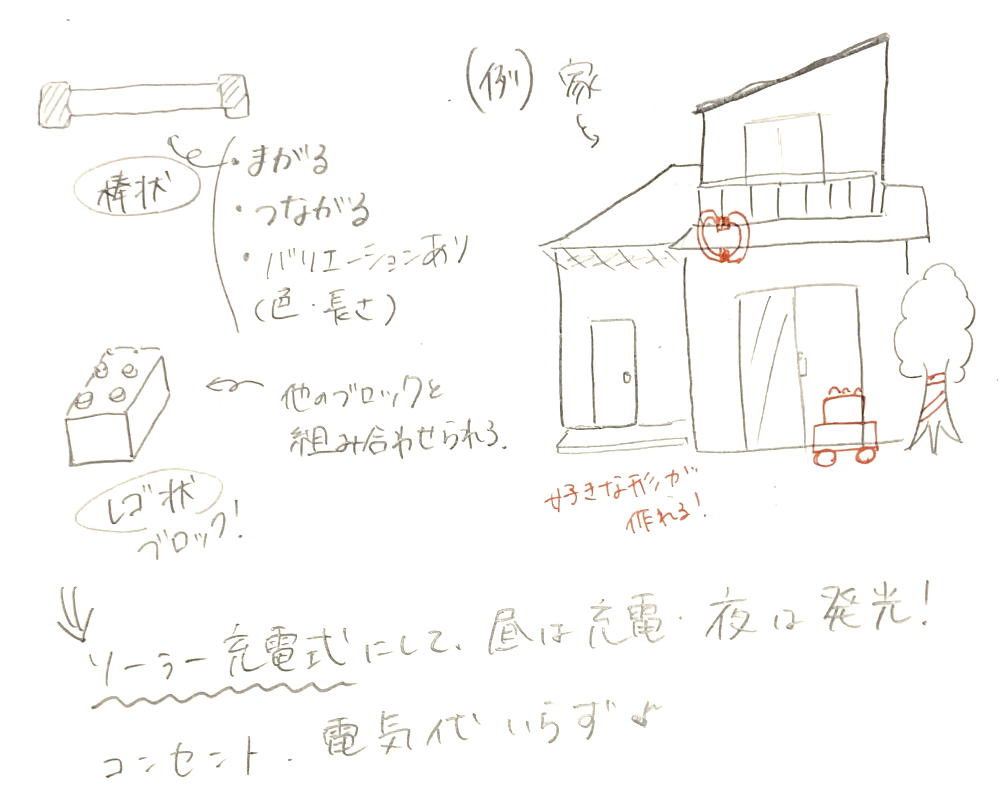 棒状
・まがる
・つながる
・バリエーションあり
(色・長さ)
レゴ状
ブロック!
他のブロックと
組み合わせられる.
(例) 家
好きな形が
作れる!
ソーラー充電式にして、昼は充電・夜は発光!
コンセント.電気代いらず♪